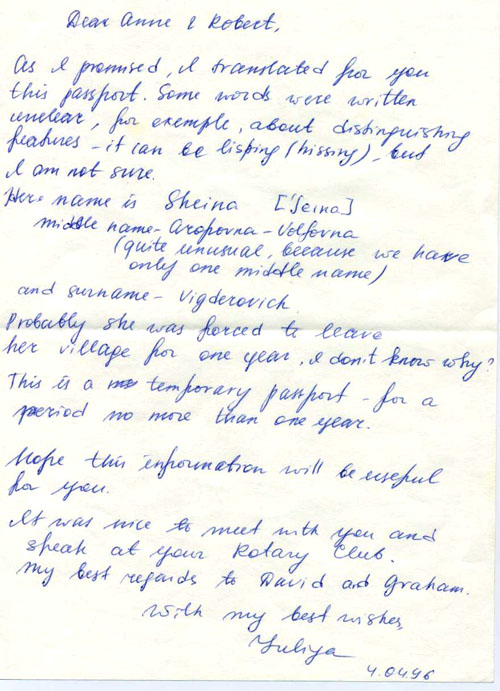 Dear Anne & Robert,
As I promised, I translated for you
this passport. Some words were written
unclear, for exemple, about distinguishing
features - it can be lisping (hissing), but
I am not sure.
Here name is Sheina ['ʃeina]
middle name - Aropovna - Volfovna
(quite unusual, because we have
only one middle name)
and surname - Vigderovich
Probably she was forced to leave
her village for one year, I don't know why?
This is a temporary passport - for a
period no more than one year.
Hope this information will be useful
for you.
It was nice to meet with you and
speak at your Rotary Club.
My best regards to David and Graham.
With my best wishes,
Yuliya
4.04.96